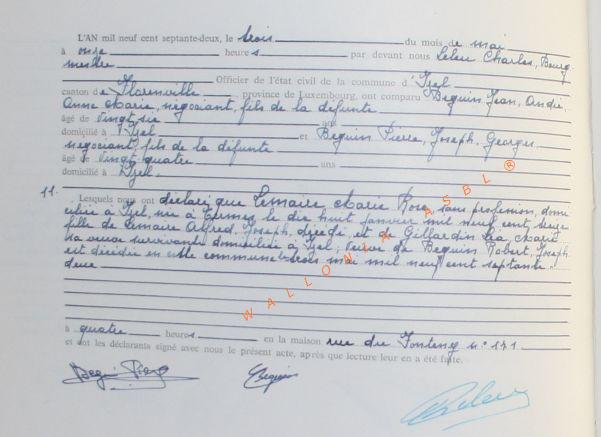 L'AN mil neuf cent septante-deux, le trois du mois de mai
à onze heures par devant nous Leleu Charles, Bourg-
mestre
Officier de l'état civil de la commune d'Izel
canton de Florenville, province de Luxembourg, ont comparu Bequin Jean, André,
Anne Marie, négociant, fils de la défunte
âgé de vingt-six ans
domicilié à Izel et Bequin Pierre, Joseph, Georges
négociant, fils de la défunte
âgé de vingt-quatre ans
domicilié à Izel.
11. Lesquels nous ont déclaré que Lemaire Marie Rose, sans profession, domi-
ciliée à Izel, née à Termes, le dix huit janvier mil neuf cent seize
fille de Lemaire Alfred, Joseph, décédé, et de Gillardin Léa Marie
sa veuve survivante domiciliée à Izel, veuve de Bequin Robert, Joseph
est décédée en cette commune le trois mai mil neuf cent septante-
deux
à quatre heures en la maison rue du Fonteny n° 171
et ont les déclarants signé avec nous le présent acte, après que lecture leur en a été faite.
Bequin
WALLONIA ASBL ®